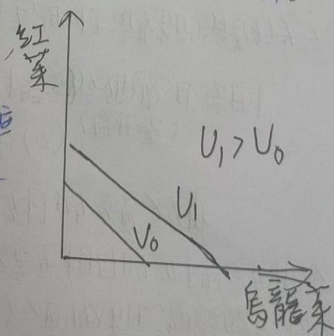 紅茶
U₁>U₀
U₁
U₀
烏龍茶